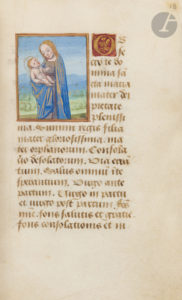 O b
secro te do
mina sca
cta maria
mater dei
pietate
plenissi
ma. Summi regis filia
mater gloriosissima. ma
ter orphanorum. Consola
cio desolatorum. Via erran
tium. Salus omnium in te
sperantium. Virgo ante
partum. Virgo in partu
et virgo post partum. Fons
mie. fons salutis et gratie
fons consolationis et in